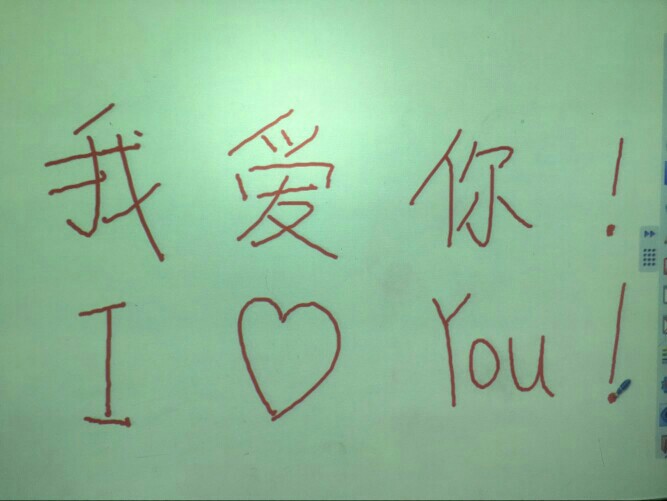 我爱你!
I ♡ You!